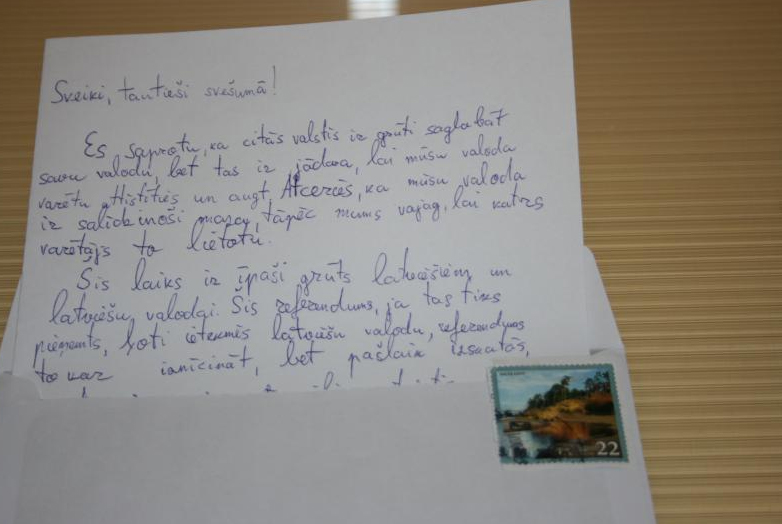 Sveiki, tautieši svešumā!
Es saprotu, ka citās valstīs ir grūti saglabāt
savu valodu, bet tas ir jādara, lai mūsu valoda
varētu attīstīties un augt. Atcerēs, ka mūsu valoda
ir salīdzinoši maza, tāpēc mums vajag, lai katrs
varētājs to lietotu.
Šis laiks ir īpaši grūts latviešiem un
latviešu valodai. Šis referendums, ja tas tiks
pieņemts, ļoti ietekmēs latviešu valodu, referendums
to var iznīcināt, bet pašlaik izskatās,
22